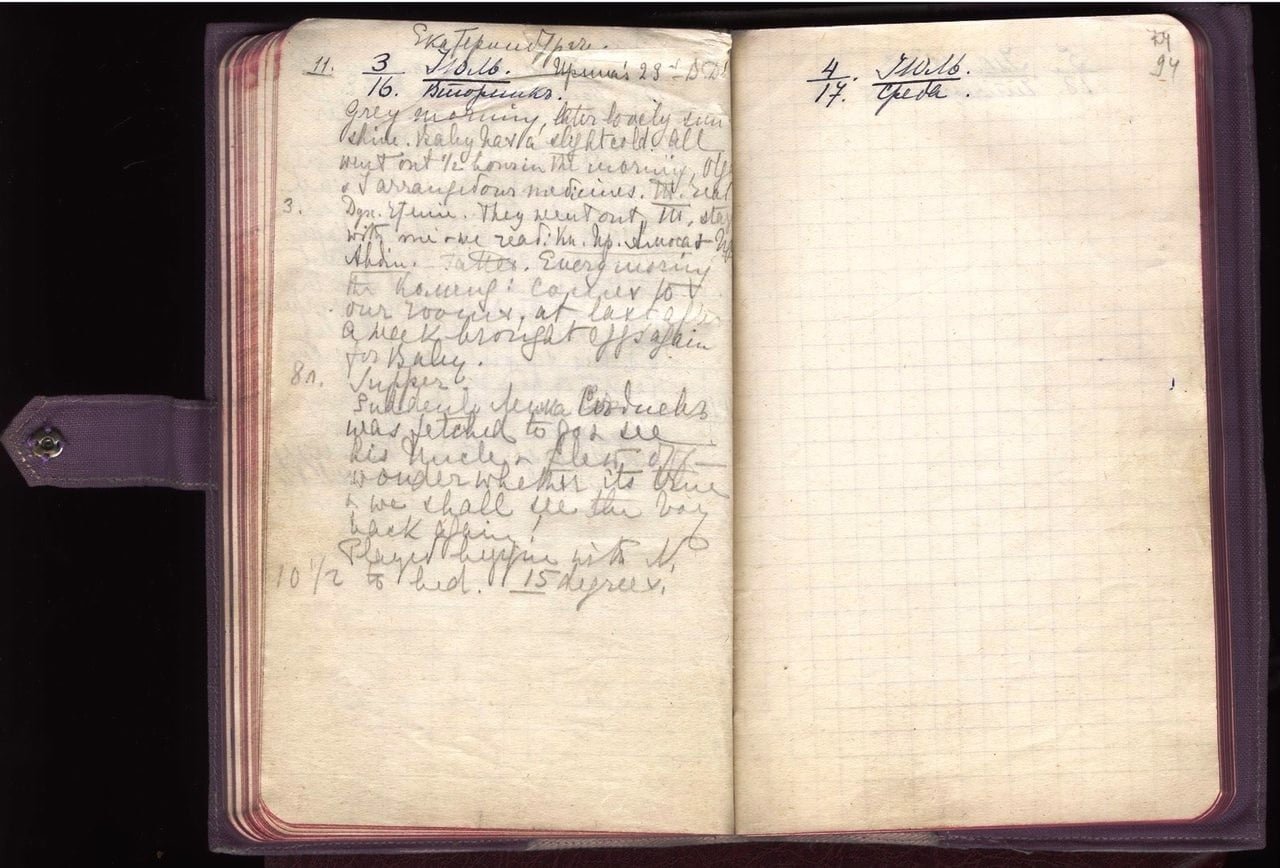 Екатеринбургъ.
11. 3/16. Іюль. Ирина's 23rd B.D.
Вторникъ.
Grey morning, later lovely sun
shine. Baby has a slight cold. All
went out ½ hour in the morning, Olga
& I arranged our medicines. T. read
3. Дух. Чтеніе. They went out, T. stay
with me & we read: Кн. Пр. Амоса & Пр.
Авдія. Tatted. Every morning
the Komend: comes to
our rooms, at last after
a week brought eggs again
for Baby.
8h. Supper.
Suddenly Лёнька Седневъ
was fetched to go & see
his Uncle & flew off –
wonder whether its true
& we shall see the boy
back again!
Played bezique with N.
10 ½ to bed. 15 degrees.
4/17. Іюль.
Среда.
94